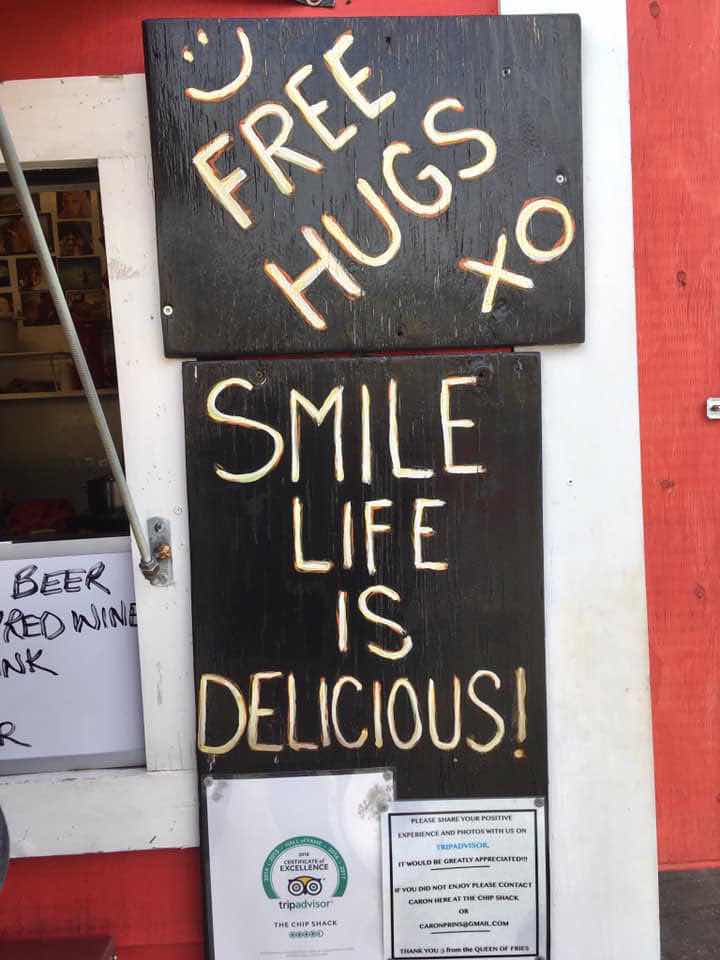 :)
FREE
HUGS
XO
SMILE
LIFE
IS
DELICIOUS!
BEER
RED WINE
NK
R
HALL of FAME
2018
CERTIFICATE of
EXCELLENCE
tripadvisor
THE CHIP SHACK
PLEASE SHARE YOUR POSITIVE
EXPERIENCE AND PHOTOS WITH US ON
TRIPADVISOR.
IT WOULD BE GREATLY APPRECIATED!!!
IF YOU DID NOT ENJOY PLEASE CONTACT
CARON HERE AT THE CHIP SHACK
OR
CARONPRINS@GMAIL.COM
THANK YOU :) from the QUEEN OF FRIES